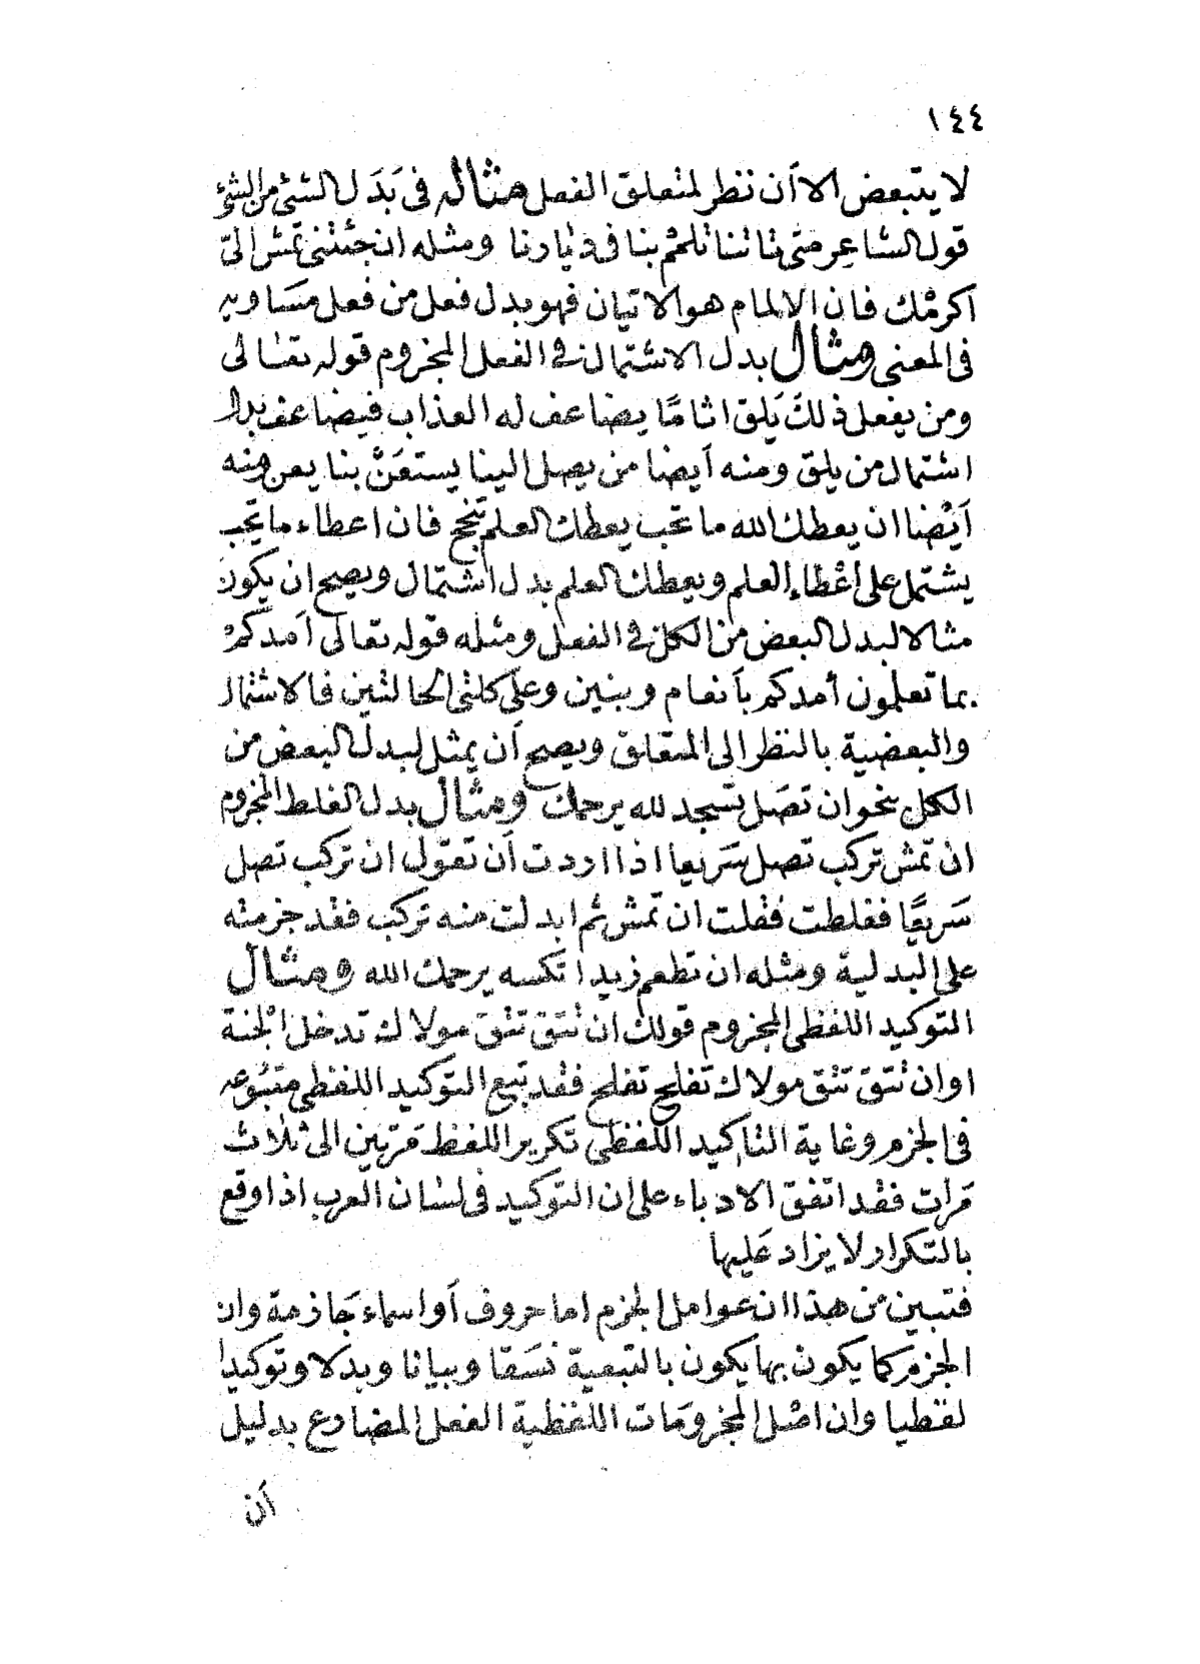 ١٤٤
لا يتبعض الا أن ننظر لمتعلق الفعل مثاله فى بَدَل الشئ من الشئ
قول الشاعِر متى تاتنا تلمم بنا فى ديارنا ومثله ان جئتنى تمش الىّ
اكرمْك فان الالمام هو الاتيان فهو بدل فعل من فعل مسَاويه
فى المعنى ومثال بدل الاشتمال فى الفعل المجزوم قوله تعالى
ومن يفعل ذلكَ يَلق اثامًا يضاعف له العذاب فيضاعف بدل
اشتمال من يلق ومنه أيضا من يصل الينا يستعَنْ بنا يعن ومنه
أيْضا ان يعطك الله ما تحب يعطك العلم تنجح فان اعطاء ما تحب
يشتمل على اعْطاء العلم ويعطك العلم بدل اشتمال ويصح ان يكون
مثالا لبدل البعض من الكل فى الفعل ومثله قوله تعالى أمدكمْ
بما تعلمون أمدكم بأنعام وبنين وعلى كلتى الحالتين فالاشتمال
والبعضية بالنظر الى المتعلق ويصح أن يمثل لبدل البعض من
الكل بنحو ان تصَل تسجد لله يرحمك ومثال بدل الغلط المجزوم
ان تمش تركب تصل سَريعا اذا اردت أن تقول ان تركب تصل
سَريعًا فغلطت فقلت ان تمش ثم ابدلت منه تركب فقد جزمته
على البدلية ومثله ان تطعم زيدا تكسه يرحمك الله ومثال
التوكيد اللفظى المجزوم قولك ان تتق تتق مولاك تدخل الجنة
او ان تتق تتق مولاك تفلح تفلح فقد تبع التوكيد اللفظى متبوعه
فى الجزم وغاية التاكيد اللفظى تكرير اللفظ مَرتين الى ثلاث
مَرات فقد اتفق الادباء على ان التوكيد فى لسَان العرب اذا وقع
بالتكرار لا يزاد عَليها
فتبين من هذا ان عوامل الجزم اما حروف أو اسماء جَازمة وان
الجزم كما يكون بها يكون بالتبعية نسَقا وبيانا وبدَلا وتوكيدا
لفظيا وان اصْل المجزومَات اللفظية الفعل المضارع بدليل
أن